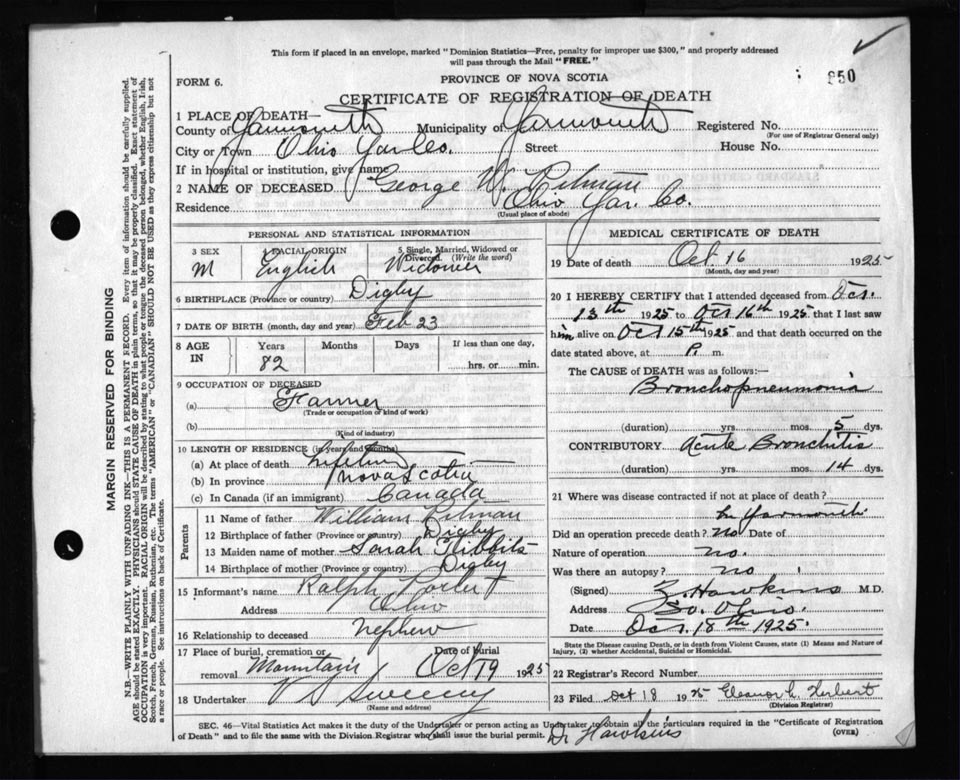 This form if placed in an envelope, marked "Dominion Statistics—Free, penalty for improper use $300," and properly addressed
will pass through the Mail "FREE."
850
FORM 6.
PROVINCE OF NOVA SCOTIA
CERTIFICATE OF REGISTRATION OF DEATH
1 PLACE OF DEATH—
County of Yarmouth Municipality of Yarmouth Registered No.
(For use of Registrar General only)
City or Town Ohio Yar Co. Street House No.
If in hospital or institution, give name
2 NAME OF DECEASED George W. Pitman
Residence Ohio Yar. Co.
(Usual place of abode)
PERSONAL AND STATISTICAL INFORMATION
3 SEX 4 RACIAL ORIGIN 5 Single, Married, Widowed or
Divorced. (Write the word)
M English Widower
6 BIRTHPLACE (Province or country) Digby
7 DATE OF BIRTH (month, day and year) Feb 23
8 AGE IN Years Months Days If less than one day,
82 hrs. or min.
9 OCCUPATION OF DECEASED
(a) Farmer
(Trade or occupation or kind of work)
(b)
(Kind of industry)
10 LENGTH OF RESIDENCE (in years and months)
(a) At place of death lifetime
(b) In province Nova Scotia
(c) In Canada (if an immigrant) Canada
Parents
11 Name of father William Pitman
12 Birthplace of father (Province or country) Digby
13 Maiden name of mother Sarah Tibbits
14 Birthplace of mother (Province or country) Digby
15 Informant's name Ralph Porter
Address Ohio
16 Relationship to deceased nephew
17 Place of burial, cremation or Date of burial
removal Mountain Oct 19 1925
18 Undertaker V S Sweeny
(Name and address)
MEDICAL CERTIFICATE OF DEATH
19 Date of death Oct 16 1925
(Month, day and year)
20 I HEREBY CERTIFY that I attended deceased from Oct.
13th 1925 to Oct 16th 1925 that I last saw
him alive on Oct 15th 1925 and that death occurred on the
date stated above, at P. m.
The CAUSE of DEATH was as follows:—
Bronchopneumonia
(duration) yrs. mos. 5 dys.
CONTRIBUTORY Acute Bronchitis
(duration) yrs. mos. 14 dys.
21 Where was disease contracted if not at place of death?
In Yarmouth
Did an operation precede death? no Date of
Nature of operation no.
Was there an autopsy? no
(Signed) Z. Hawkins M.D.
Address So. Ohio.
Date Oct. 18th 1925.
State the Disease causing Death, or in death from Violent Causes, state (1) Means and Nature of
Injury, (2) whether Accidental, Suicidal or Homicidal.
22 Registrar's Record Number
23 Filed Oct 18 1925 Eleanor L. Hurlbert
(Division Registrar)
SEC. 46—Vital Statistics Act makes it the duty of the Undertaker or person acting as Undertaker to obtain all the particulars required in the "Certificate of Registration
of Death" and to file the same with the Division Registrar who shall issue the burial permit. Dr Hawkins (OVER)
MARGIN RESERVED FOR BINDING
N.B.—WRITE PLAINLY WITH UNFADING INK—THIS IS A PERMANENT RECORD. Every item of information should be carefully supplied.
AGE should be stated EXACTLY. PHYSICIANS should STATE CAUSE OF DEATH in plain terms, so that it may be properly classified. Exact statement of
OCCUPATION is very important. RACIAL ORIGIN will be described by stating to what people or tongue the deceased person belonged, whether English, Irish,
Scotch, French, German, Russian, Ruthenian, etc. The terms "AMERICAN" or "CANADIAN" SHOULD NOT BE USED as they express citizenship but not
a race or people. See instructions on back of Certificate.